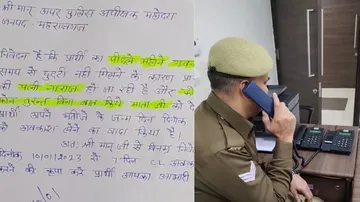 श्री मान् अपर पुलिस अधीक्षक महोदय
जनपद - महराजगंज
निवेदन है कि प्रार्थी का पिछले महीने
समय से छुट्टी नहीं मिलने के कारण
पत्नी नाराज हो जा रही है और
फोन तुरन्त बिना बात किये माता जी को दे
प्रार्थी अपने भतीजे के जन्म दिन
को अवकाश लेने का वादा किया है।
अतः श्री मान् जी से विनम्र
दिनांक 10/01/2023 से दिन CL
करने की कृपा करें प्रार्थी आपका आभारी